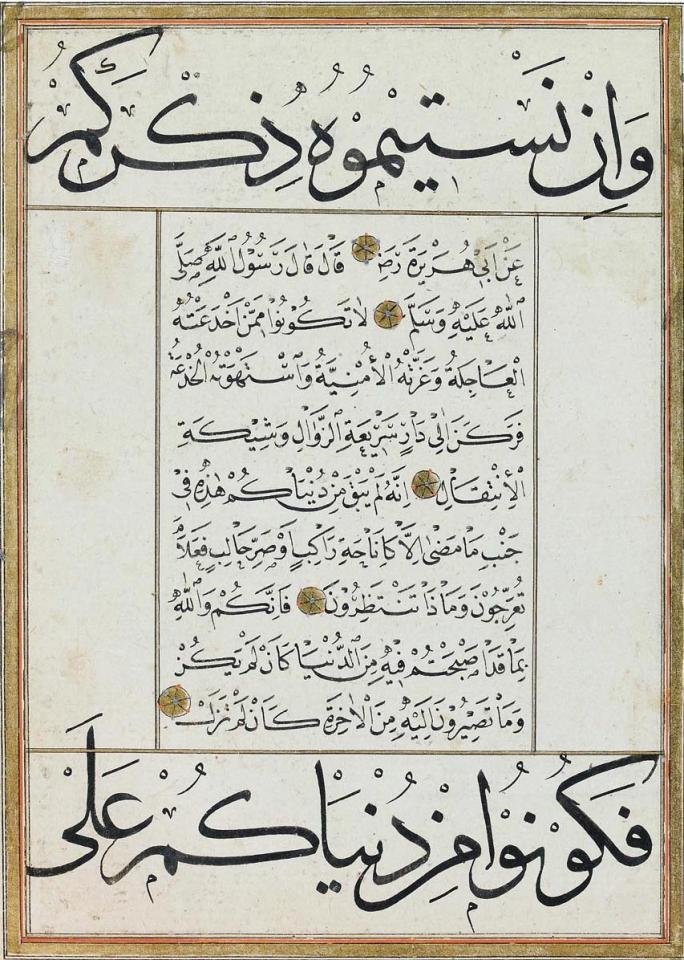 وَاِنْ نَسِيتُمُوهُ ذِكْرَكُمْ
عَنْ اَبِي هُرَيْرَةَ رَضِ قَالَ قَالَ رَسُولُ اللّٰهِ صَلَّى
اللّٰهُ عَلَيْهِ وَسَلَّمَ لَا تَكُونُوا مِمَّنْ اخْدَعَتْهُ
الْعَاجِلَةُ وَغَرَّتْهُ الْاُمْنِيَّةُ وَاسْتَهْوَتْهُ الْخُدْعَةُ
فَرَكَنَ اِلَى دَارٍ سَرِيعَةِ الزَّوَالِ وَشِيكَةِ
الْاِنْتِقَالِ اِنَّهُ لَمْ يَبْقَ مِنْ دُنْيَاكُمْ هٰذِهِ فِي
جَنْبِ مَا مَضَى اِلَّا كَاِنَاخَةِ رَاكِبٍ اَوْ صَرِّ حَالِبٍ فَعَلَامَ
تُعَرِّجُونَ وَمَاذَا تَنْتَظِرُونَ فَاِنَّكُمْ وَاللّٰهِ
بِمَا قَدْ اَصْبَحْتُمْ فِيهِ مِنَ الدُّنْيَا كَاَنْ لَمْ يَكُنْ
وَمَا تَصِيرُونَ اِلَيْهِ مِنَ الْاٰخِرَةِ كَاَنْ لَمْ تَزَلْ
فَكُونُوا مِنْ دُنْيَاكُمْ عَلَى